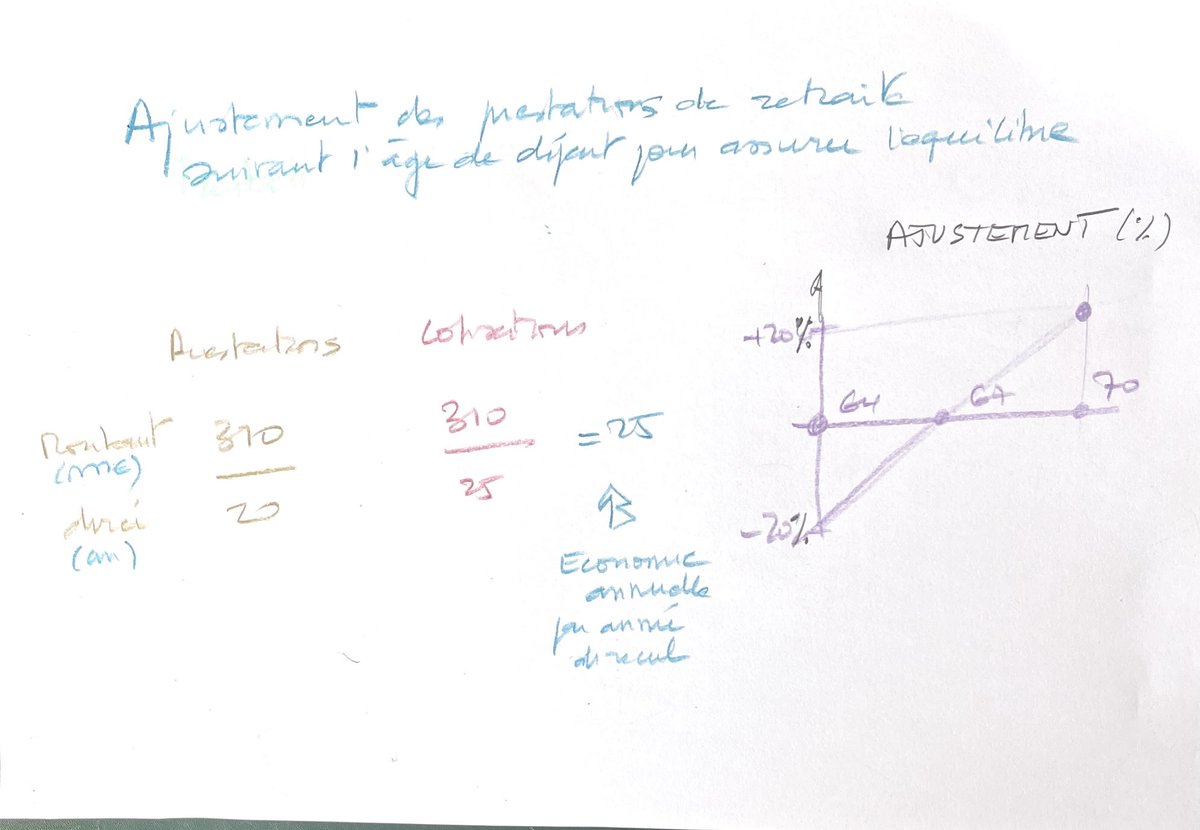 Ajustement des prestations de retraite
suivant l'âge de départ pour assurer l'équilibre
AJUSTEMENT (%)
Prestations
Cotisations
+20%
64
67
70
Montant
(Md€)
310
310
= 25
durée
(an)
20
25
-20%
Economie
annuelle
par année
de recul